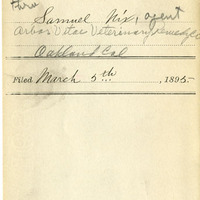 thru
Samuel Nix, agent
Arbor Vitae Veterinary Remedy Co
Oakland Cal
Filed March 5th, 1895